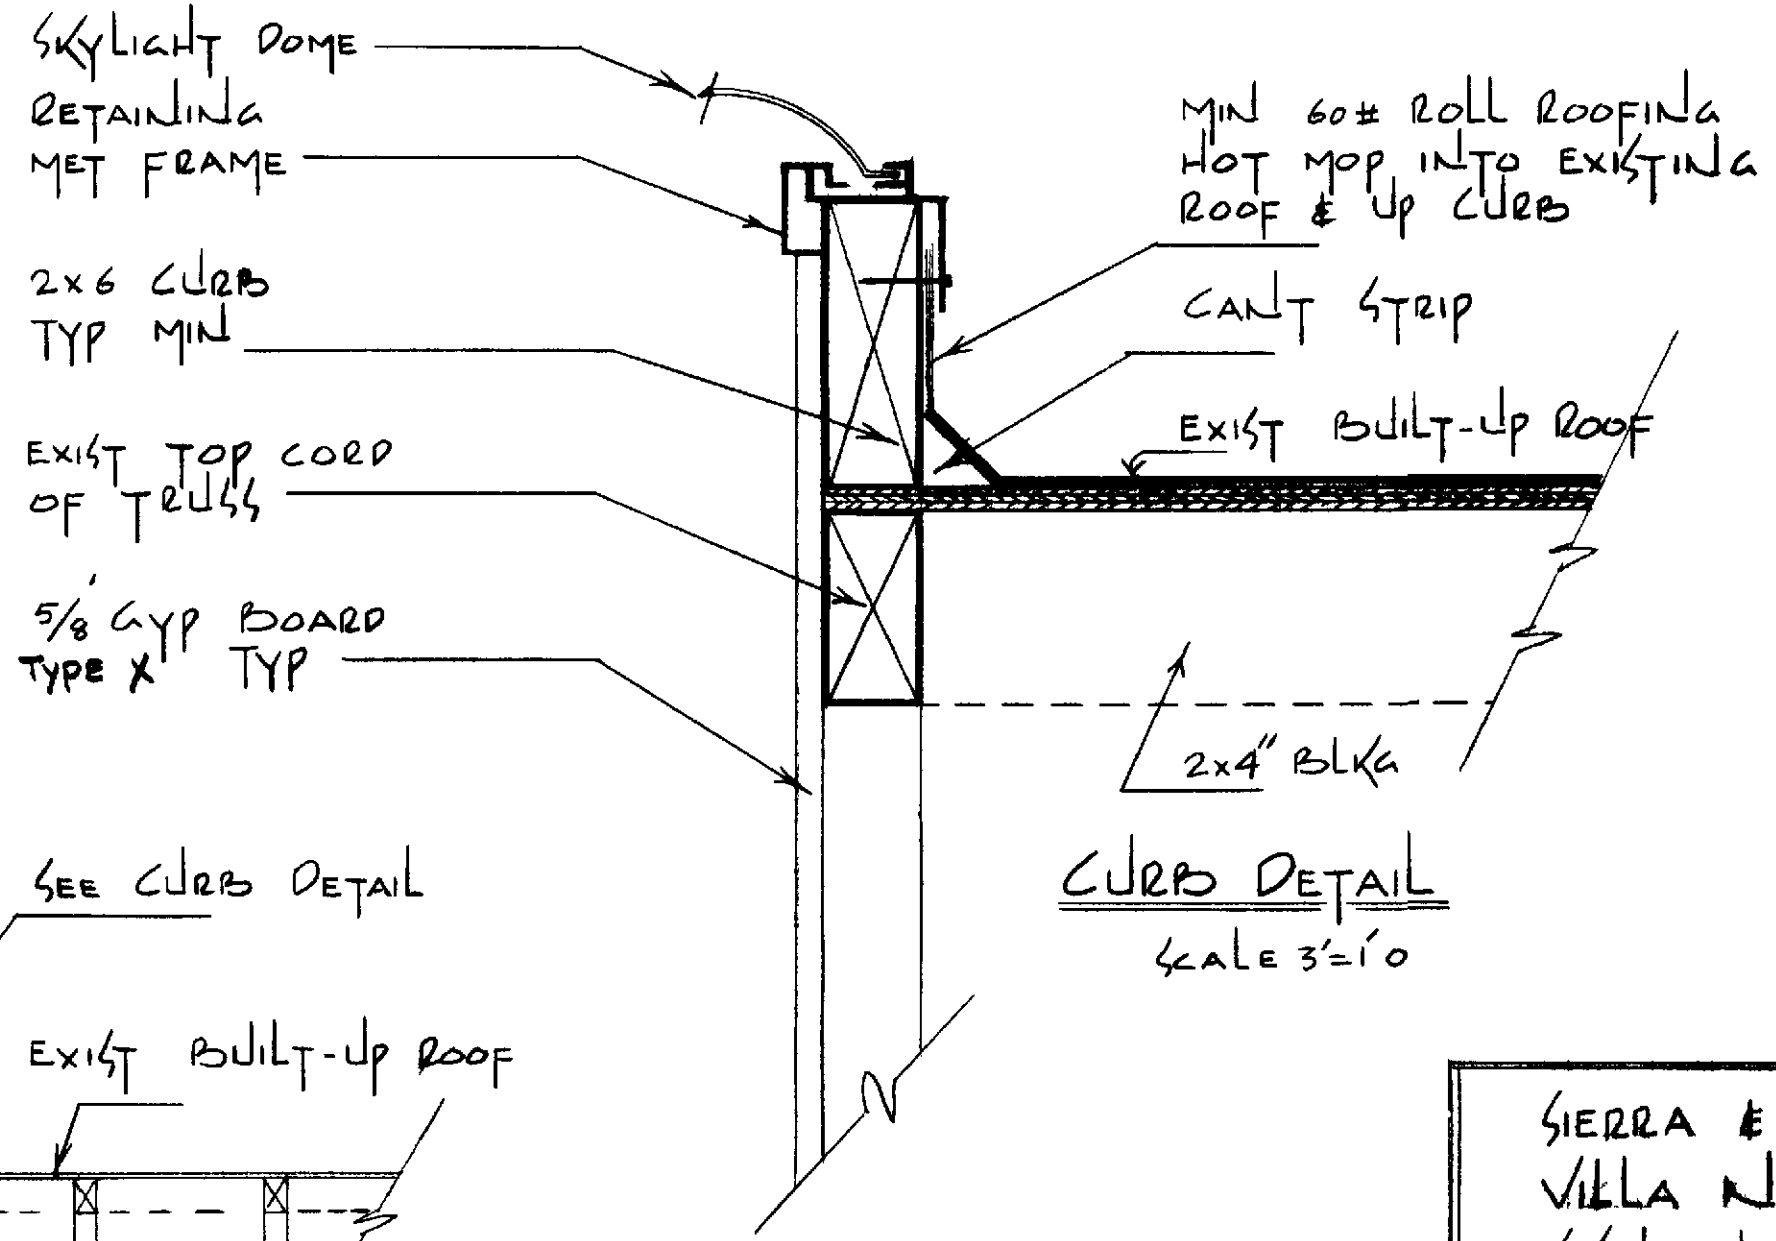 SKYLIGHT DOME
RETAINING
MET FRAME
2x6 CURB
TYP MIN
EXIST TOP CORD
OF TRUSS
5/8' GYP BOARD
TYPE X TYP
SEE CURB DETAIL
EXIST BUILT-UP ROOF
MIN 60# ROLL ROOFING
HOT MOP INTO EXISTING
ROOF & UP CURB
CANT STRIP
EXIST BUILT-UP ROOF
2x4" BLKG
CURB DETAIL
SCALE 3'=1'0
SIERRA &
VILLA